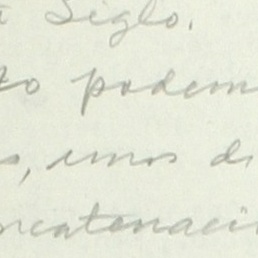 Siglo.
to podem
s, unos di
ncatenaci